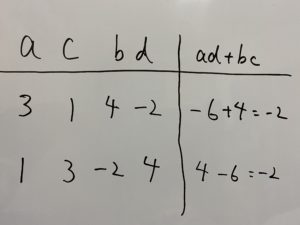 a c b d ad+bc
3 1 4 -2 -6+4=-2
1 3 -2 4 4-6=-2